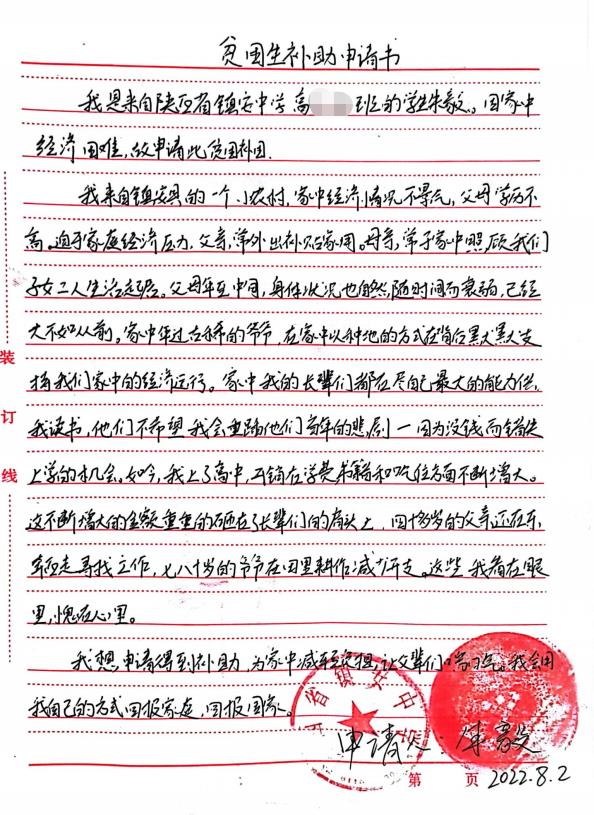 贫困生补助申请书
我是来自陕西省镇安中学高班的学生朱毅。因家中
经济困难,故申请此贫困补困.
我来自镇安县的一个小农村,家中经济情况不景气,父母学历不
高。迫于家庭经济压力,父亲常外出补贴家用。母亲常于家中照顾我们
子女二人生活起居。父母年至中间,身体状况也自然随时间而衰弱,已经
大不如从前。家中年过古稀的爷爷,在家中以种地的方式在背后默默支
持我们家中的经济运行。家中我的长辈们都在尽自己最大的能力供
我读书,他们不希望我会重蹈他们当年的悲剧—因为没钱而错失
上学的机会。如今,我上了高中,开销在学费书籍和吃住方面不断增大。
这不断增大的金额重重的砸在了长辈们的肩头上,四十多岁的父亲还在东
奔西走寻找工作,七八十岁的爷爷在田里耕作减少开支。这些我看在眼
里,愧在心里。
我想申请得到补助,为家中减轻负担,让父辈们喘口气。我会用
我自己的方式回报家庭,回报国家。
省镇安中
申请人 朱毅
第 页 2022.8.2
装
订
线